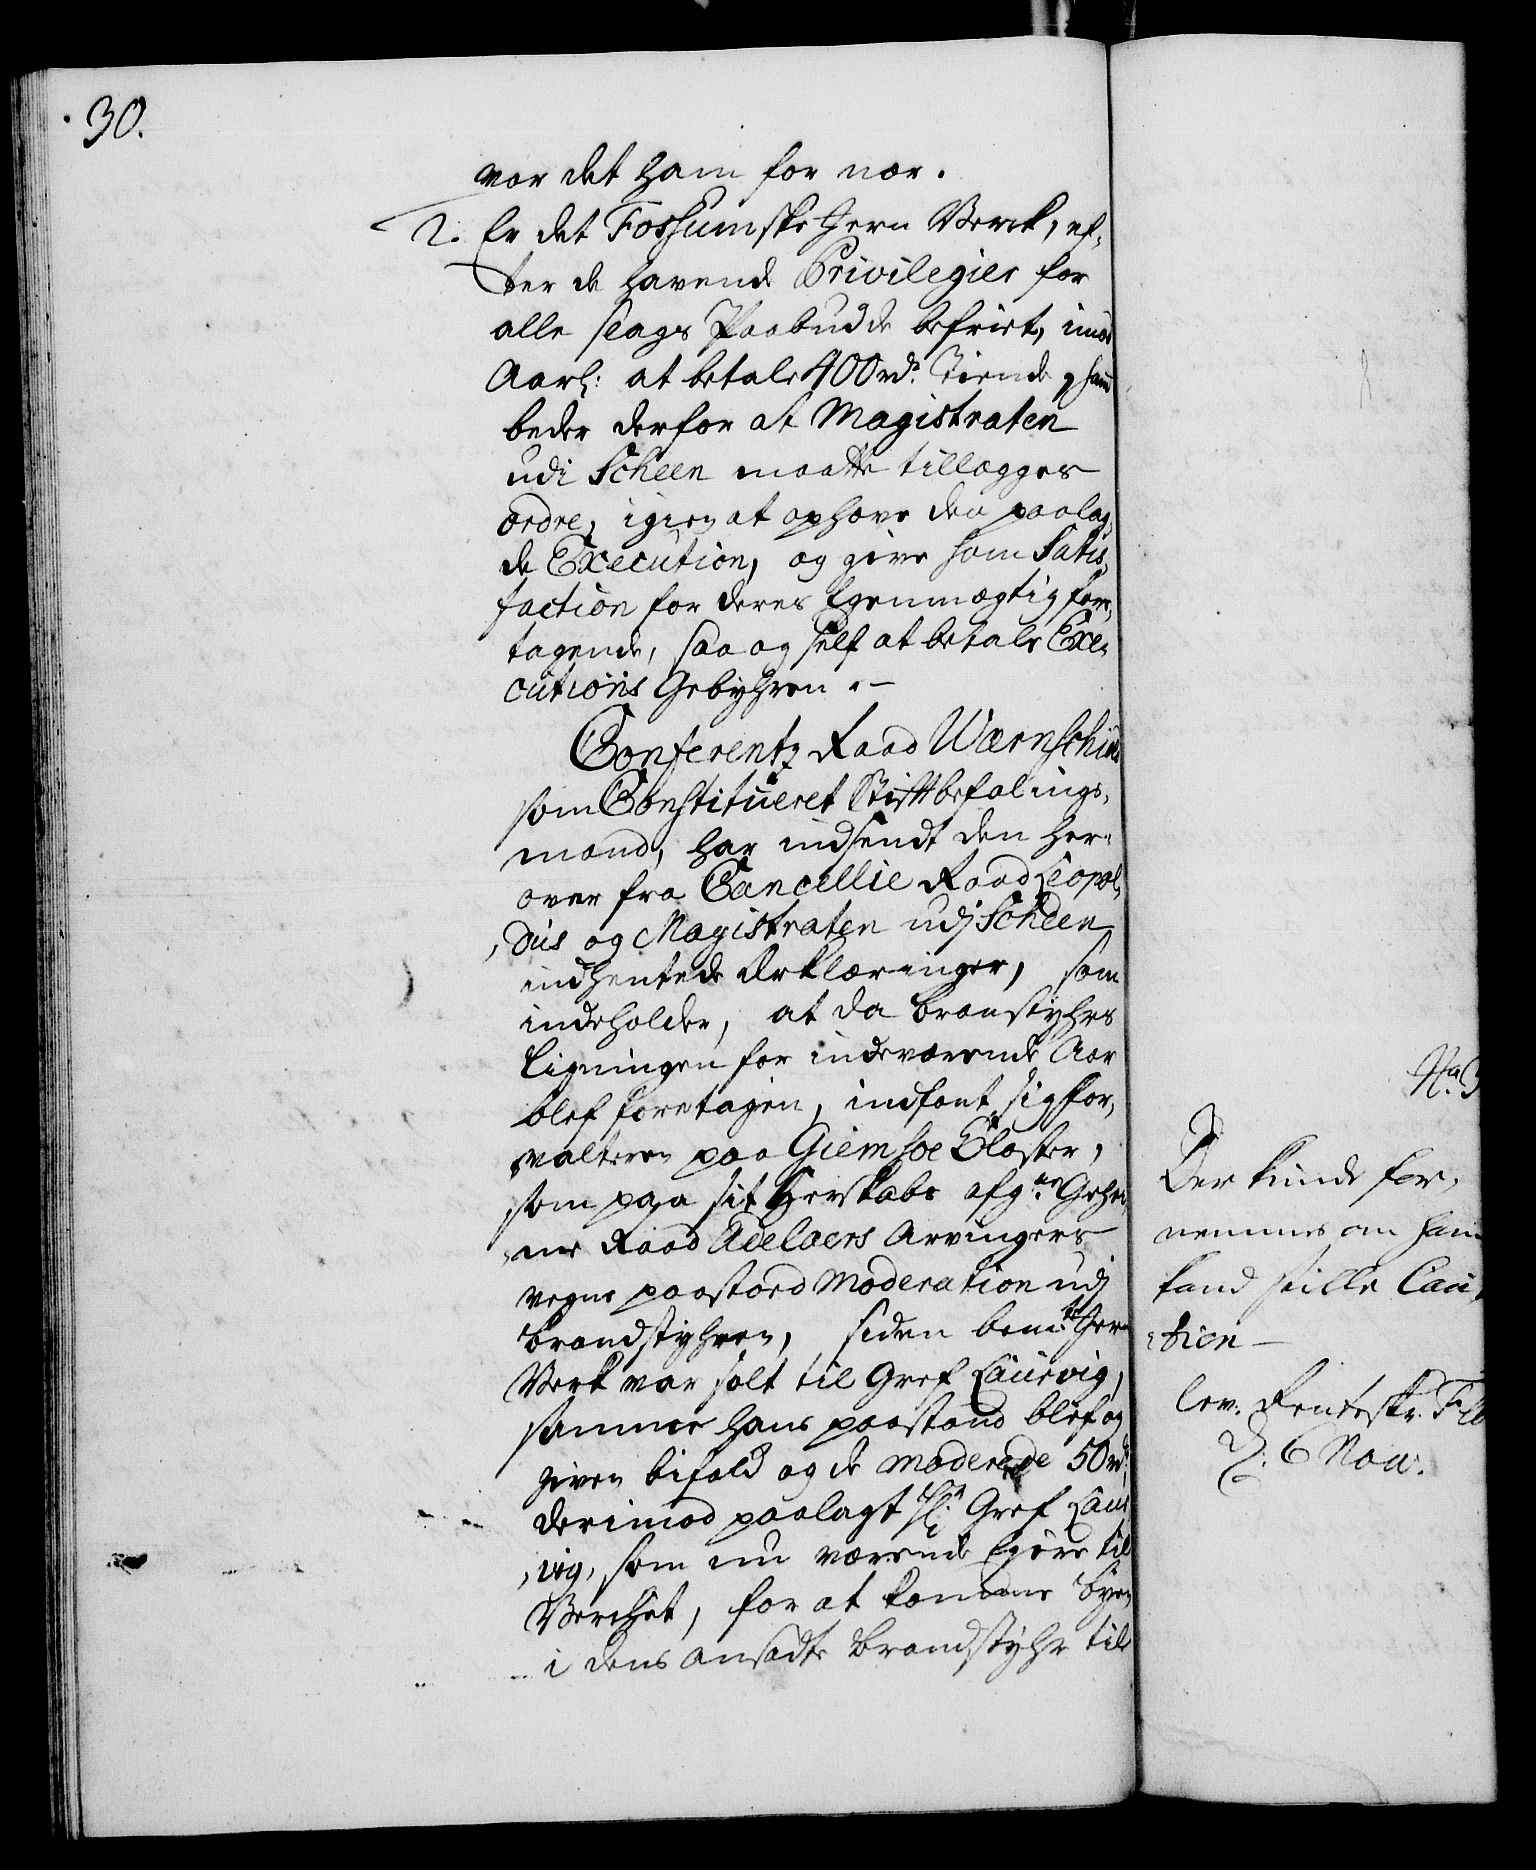 30.
var det ham for nær.
2. Er det Fossumske Jern Verck, ef-
ter de havende Privilegier for
alle slags Paabudde befriet, imod
Aarl: at betale 400 rdr. Tiende, hand
beder derfor at Magistraten
udi Scheen maatte tillægges
ordre, igien at ophæve den paalag-
de Execution, og give ham Satis-
faction for deres Egenmægtig fore-
tagende, saa og self at betale Exe-
cutions Gebyhren.-
Conferentz Raad Wærnschiold
som Constitueret Stiftbefalings-
mand, har indsendt den her-
over fra Cancellie Raad Leopol-
dus og Magistraten udj Scheen
indhentede Erklæringer, som
indeholder, at da brandstyhrs
Ligningen for indeværende Aar
blef foretagen, indfant sig for-
valteren paa Giemsøe Closter,
som paa sit Herskabs afg.ne Gehei-
me Raad Adelaers Arvingers
vegne paastoed Moderation udj
brandstyhren, siden bem.te Jern
Verk var solt til Gref Laurvig,
samme hans paastand blef og
given bifald og de moderede 50 rd.
derimod paalagt Gref Laur-
vig, som nu værende Eyere til
Verchet, for at komme byen
i dens ansadte brandstyhr til
No. 3
Der kunde for-
nemmes om hand
kand stille Cau-
tion-
lev. Renteskr.
d. 6 Nov.